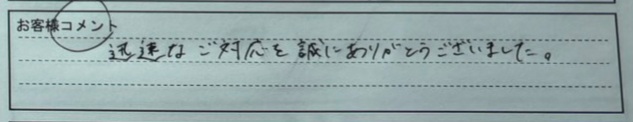 お客様コメント
迅速なご対応を誠にありがとうございました。